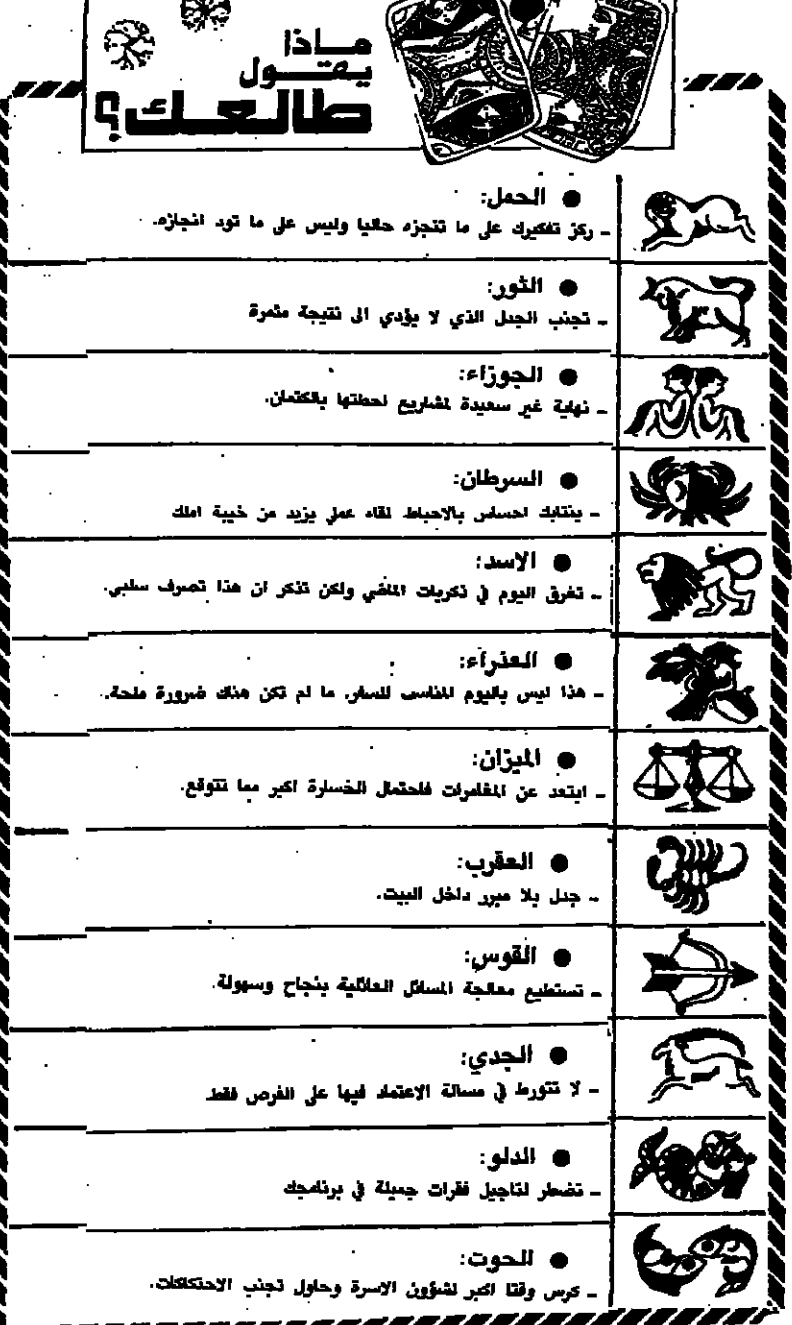 ماذا
يقول
طالعك؟
● الحمل:
- ركز تفكيرك على ما تنجزه حاليا وليس على ما تود انجازه.
● الثور:
- تجنب الجدل الذي لا يؤدي الى نتيجة مثمرة
● الجوزاء:
- نهاية غير سعيدة لمشاريع احطتها بالكتمان.
● السرطان:
- ينتابك احساس بالاحباط لقاء عمل يزيد من خيبة املك
● الاسد:
- تغرق اليوم في ذكريات الماضي ولكن تذكر ان هذا تصرف سلبي.
● العذراء:
- هذا ليس باليوم المناسب للسفر، ما لم تكن هناك ضرورة ملحة.
● الميزان:
- ابتعد عن المغامرات فاحتمال الخسارة اكبر مما تتوقع.
● العقرب:
- جدل بلا مبرر داخل البيت.
● القوس:
- تستطيع معالجة المسائل العائلية بنجاح وسهولة.
● الجدي:
- لا تتورط في مسالة الاعتماد فيها على الفرص فقط.
● الدلو:
- تضطر لتاجيل فقرات جميلة في برنامجك
● الحوت:
- كرس وقتا اكبر لشؤون الاسرة وحاول تجنب الاحتكاكات.